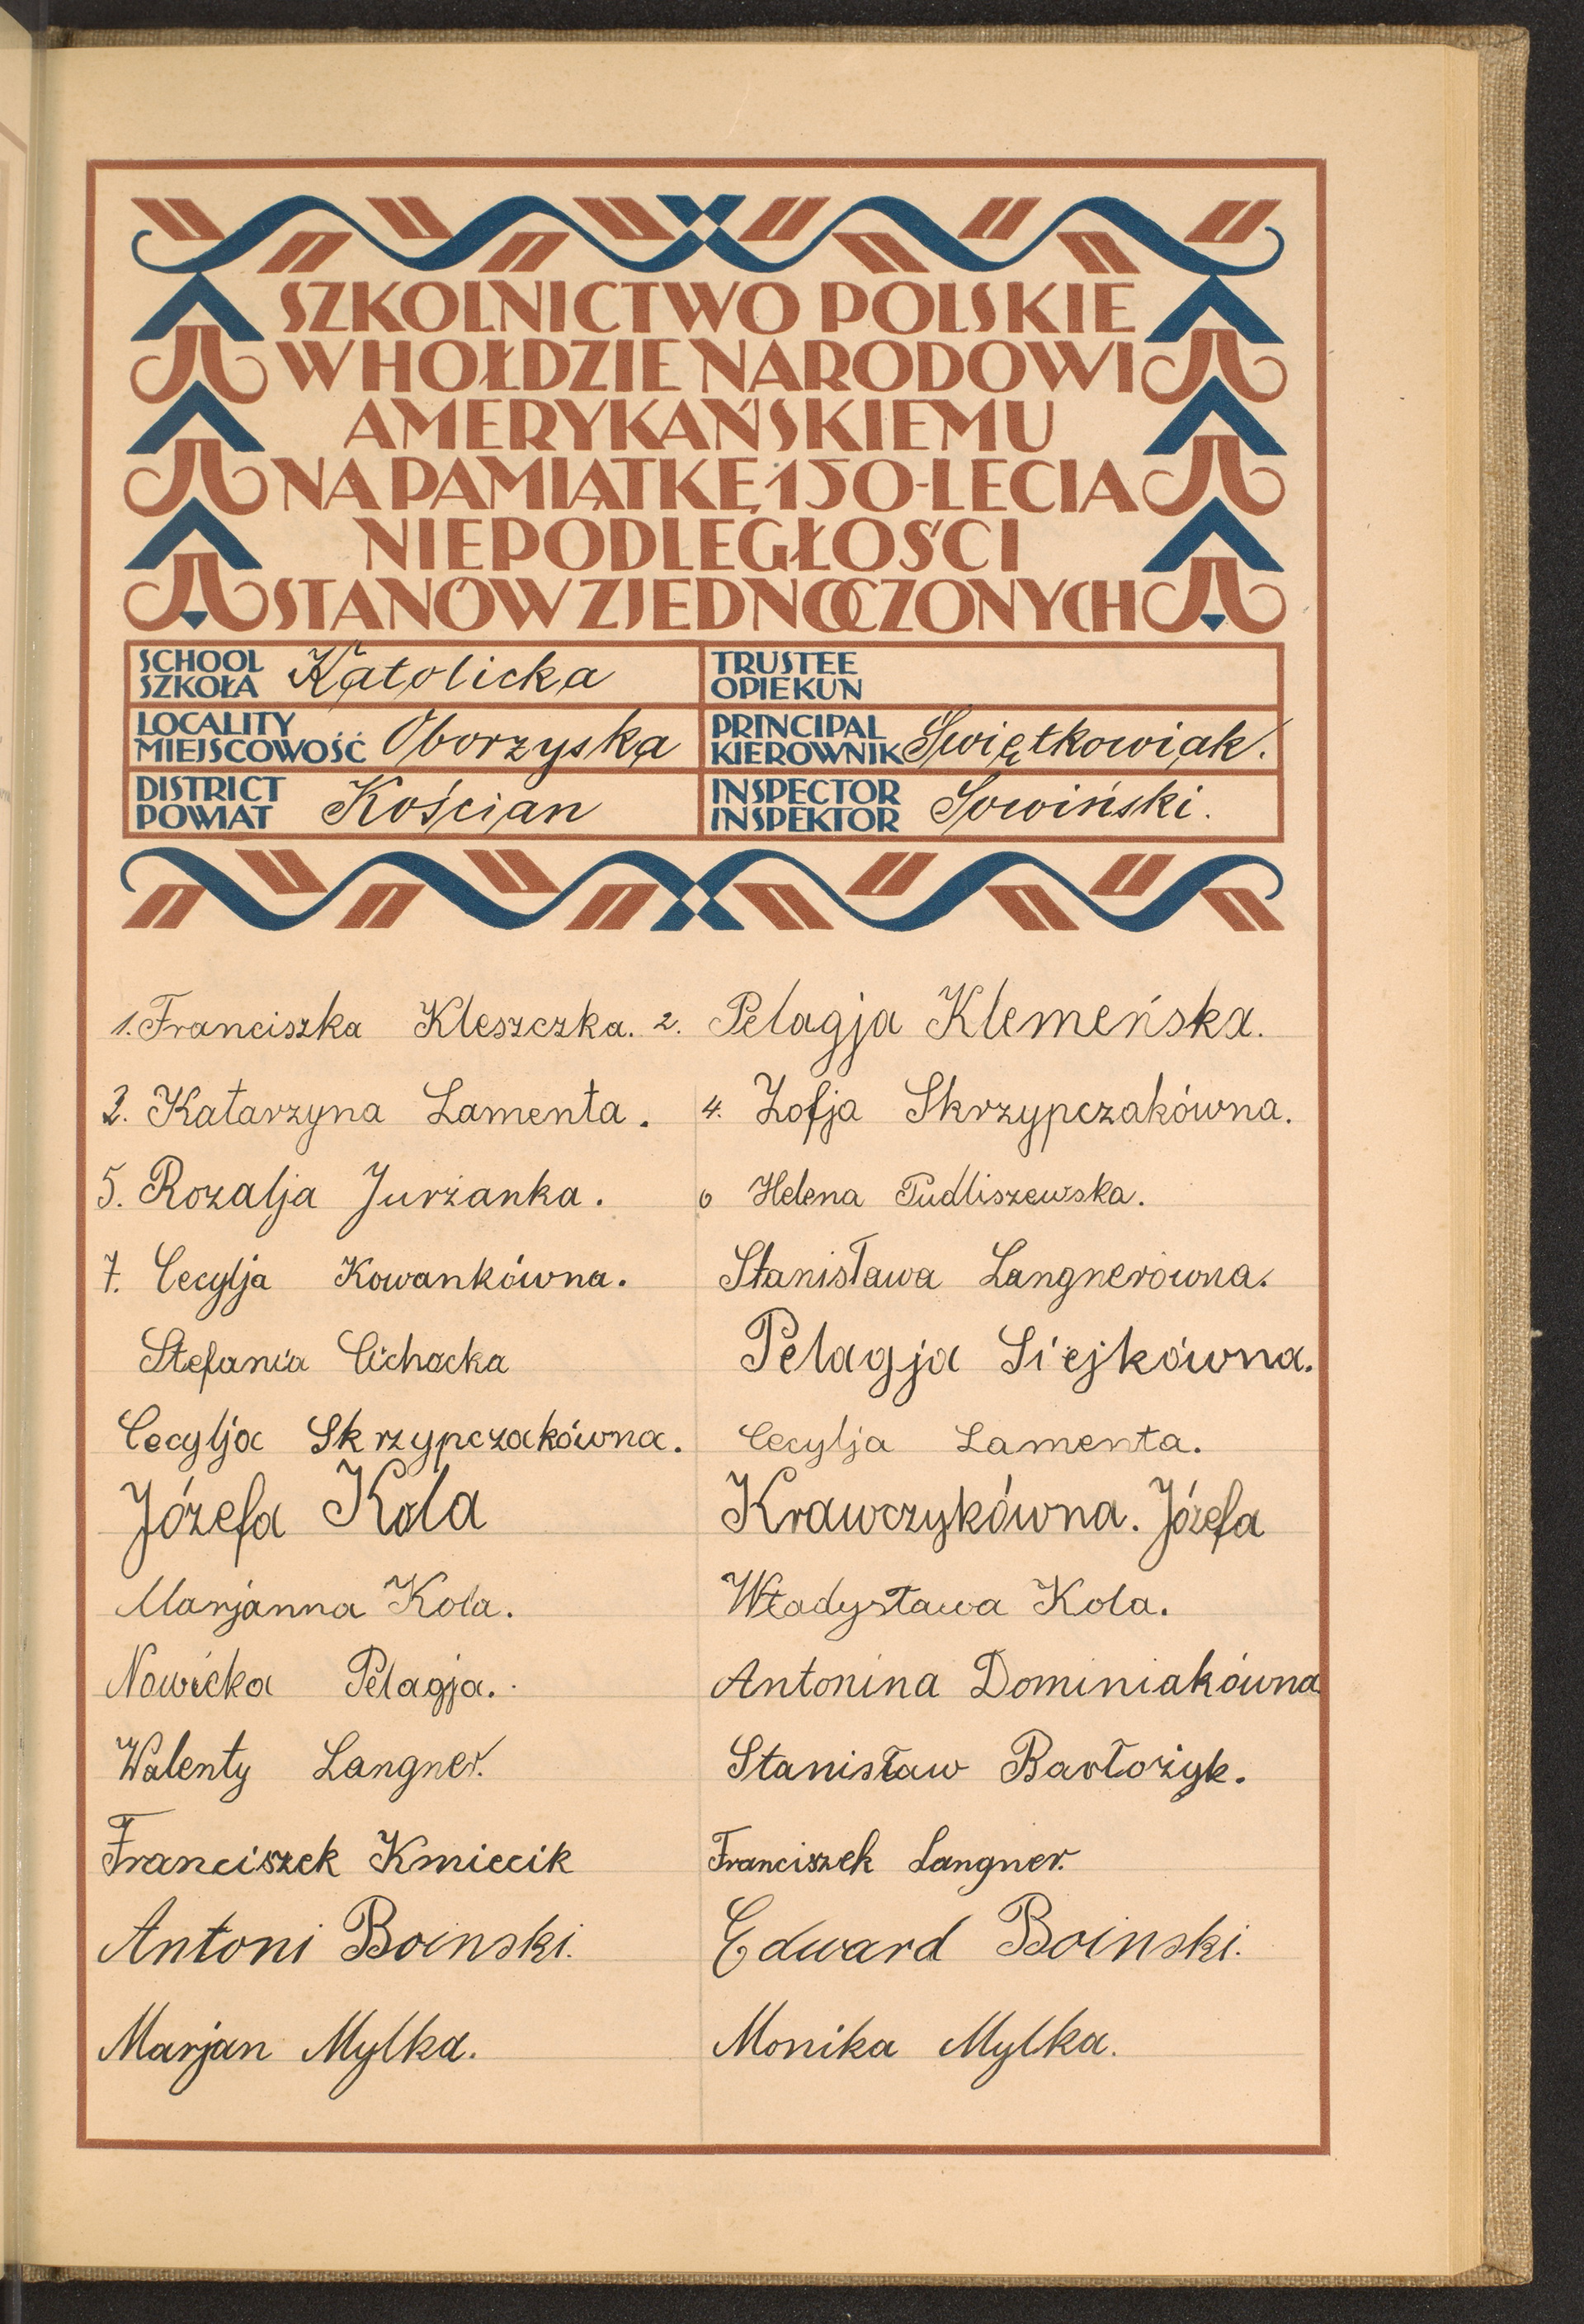 SZKOLNICTWO POLSKIE
W HOŁDZIE NARODOWI
AMERYKAŃSKIEMU
NA PAMIĄTKĘ 150-LECIA
NIEPODLEGŁOŚCI
STANÓW ZJEDNOCZONYCH
SCHOOL
SZKOŁA Katolicka
TRUSTEE
OPIEKUN
LOCALITY
MIEJSCOWOŚĆ Oborzyska
PRINCIPAL
KIEROWNIK Świętkowiak.
DISTRICT
POWIAT Kościan
INSPECTOR
INSPEKTOR Sowiński.
1. Franciszka Kleszczka. 2. Pelagja Klemeńska.
3. Katarzyna Lamenta. 4. Zofja Skrzypczakówna.
5. Rozalja Jurżanka. 6 Helena Pudliszewska.
7. Cecylja Kowankówna. Stanisława Langnerówna.
Stefania Cichocka Pelagja Siejkówna.
Cecylja Skrzypczakówna. Cecylja Lamenta.
Józefa Kola Krawczykówna. Józefa
Marjanna Kola. Władysława Kola.
Nowicka Pelagja. Antonina Dominiakówna
Walenty Langner. Stanisław Bartożyk.
Franciszek Kmiecik Franciszek Langner.
Antoni Boinski. Edward Boinski.
Marjan Mylka. Monika Mylka.